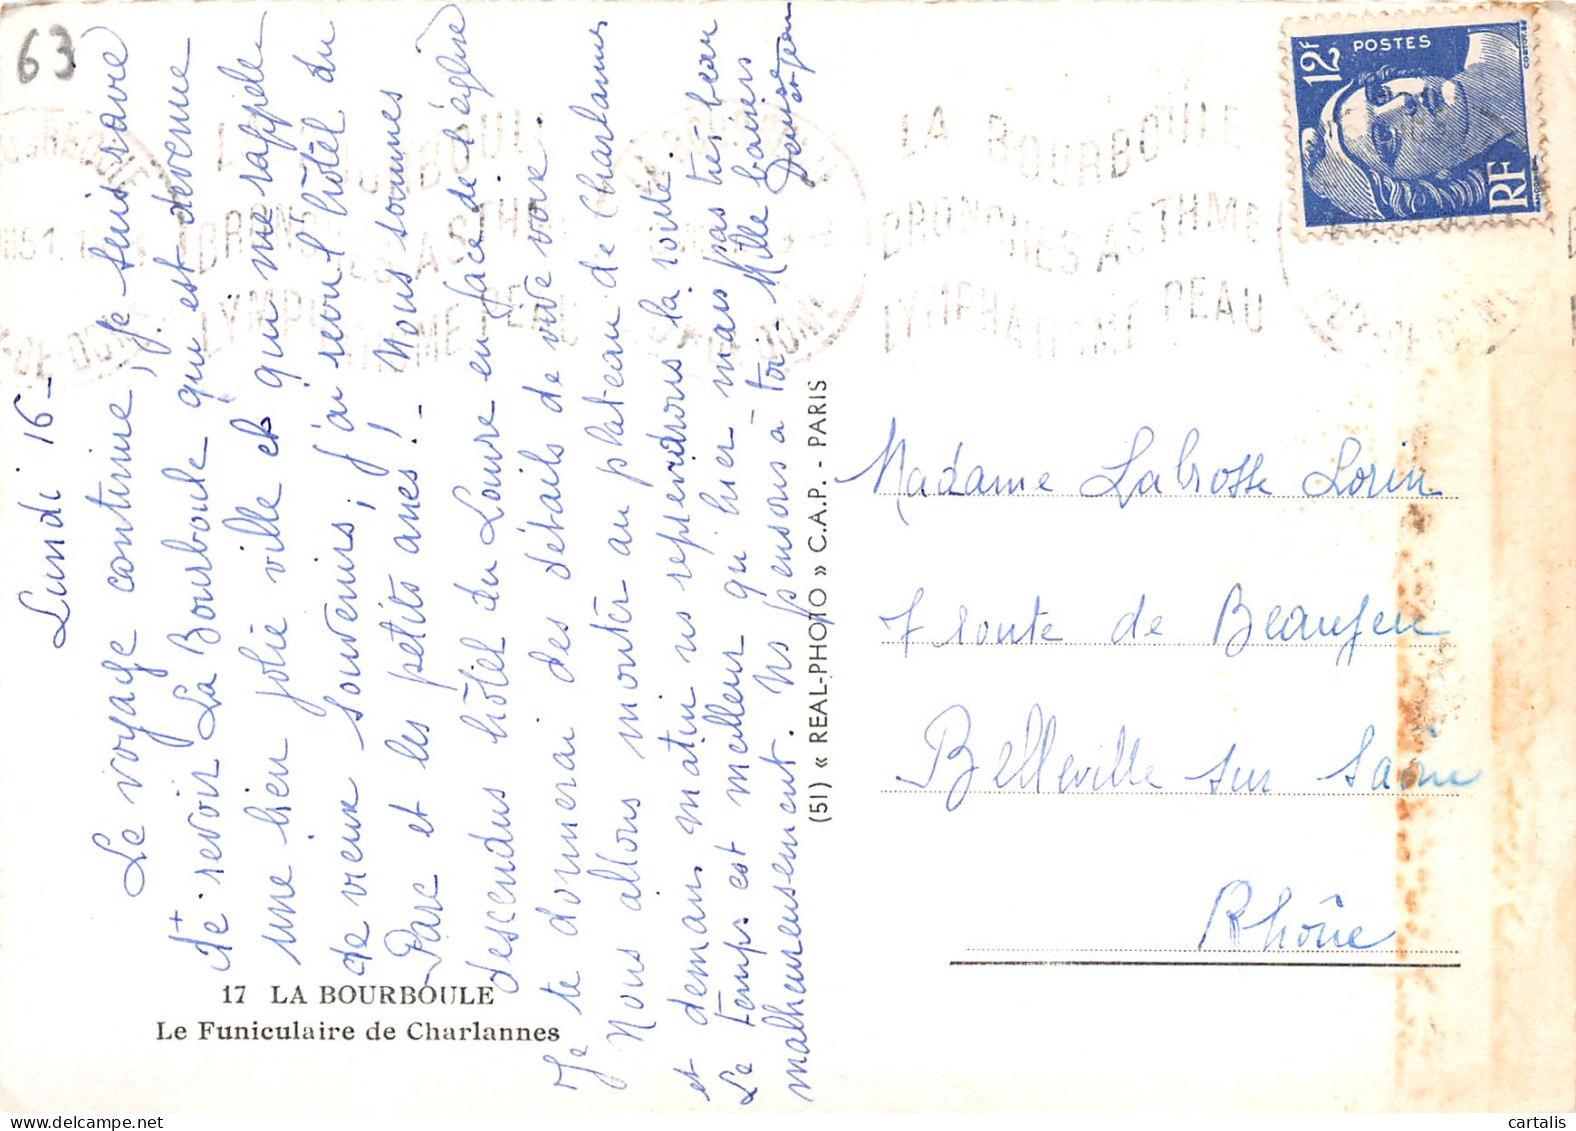 63
Lundi 16 -
Le voyage continue, je suis ravie
de revoir La Bourboule qui est devenue
une bien jolie ville et qui me rappelle
de vieux souvenirs, j'ai revu l'hôtel du
Parc et les petits anes! - Nous sommes
descendus hôtel du Louvre en face de l'église
Je te donnerai des détails de vive voix.
Nous allons monter au plateau de Charlannes
et demain matin ns reprendrons la route.
Le temps est meilleur qu'hier mais pas très beau
malheureusement. Ns pensons à toi. Mille baisers
Denise
et Jean
17 LA BOURBOULE
Le Funiculaire de Charlannes
(51) « REAL-PHOTO » C.A.P. - PARIS
LA BOURBOULE
BRONCHES ASTHME
LYMPHATISME PEAU
LA BOURBOULE
BRONCHES ASTHME
LYMPHATISME PEAU
PUY-DE-DOME
12F
POSTES
RF
Madame Labrosse Lorin
7 route de Beaujeu
Belleville sur Saône
Rhône
cartalis